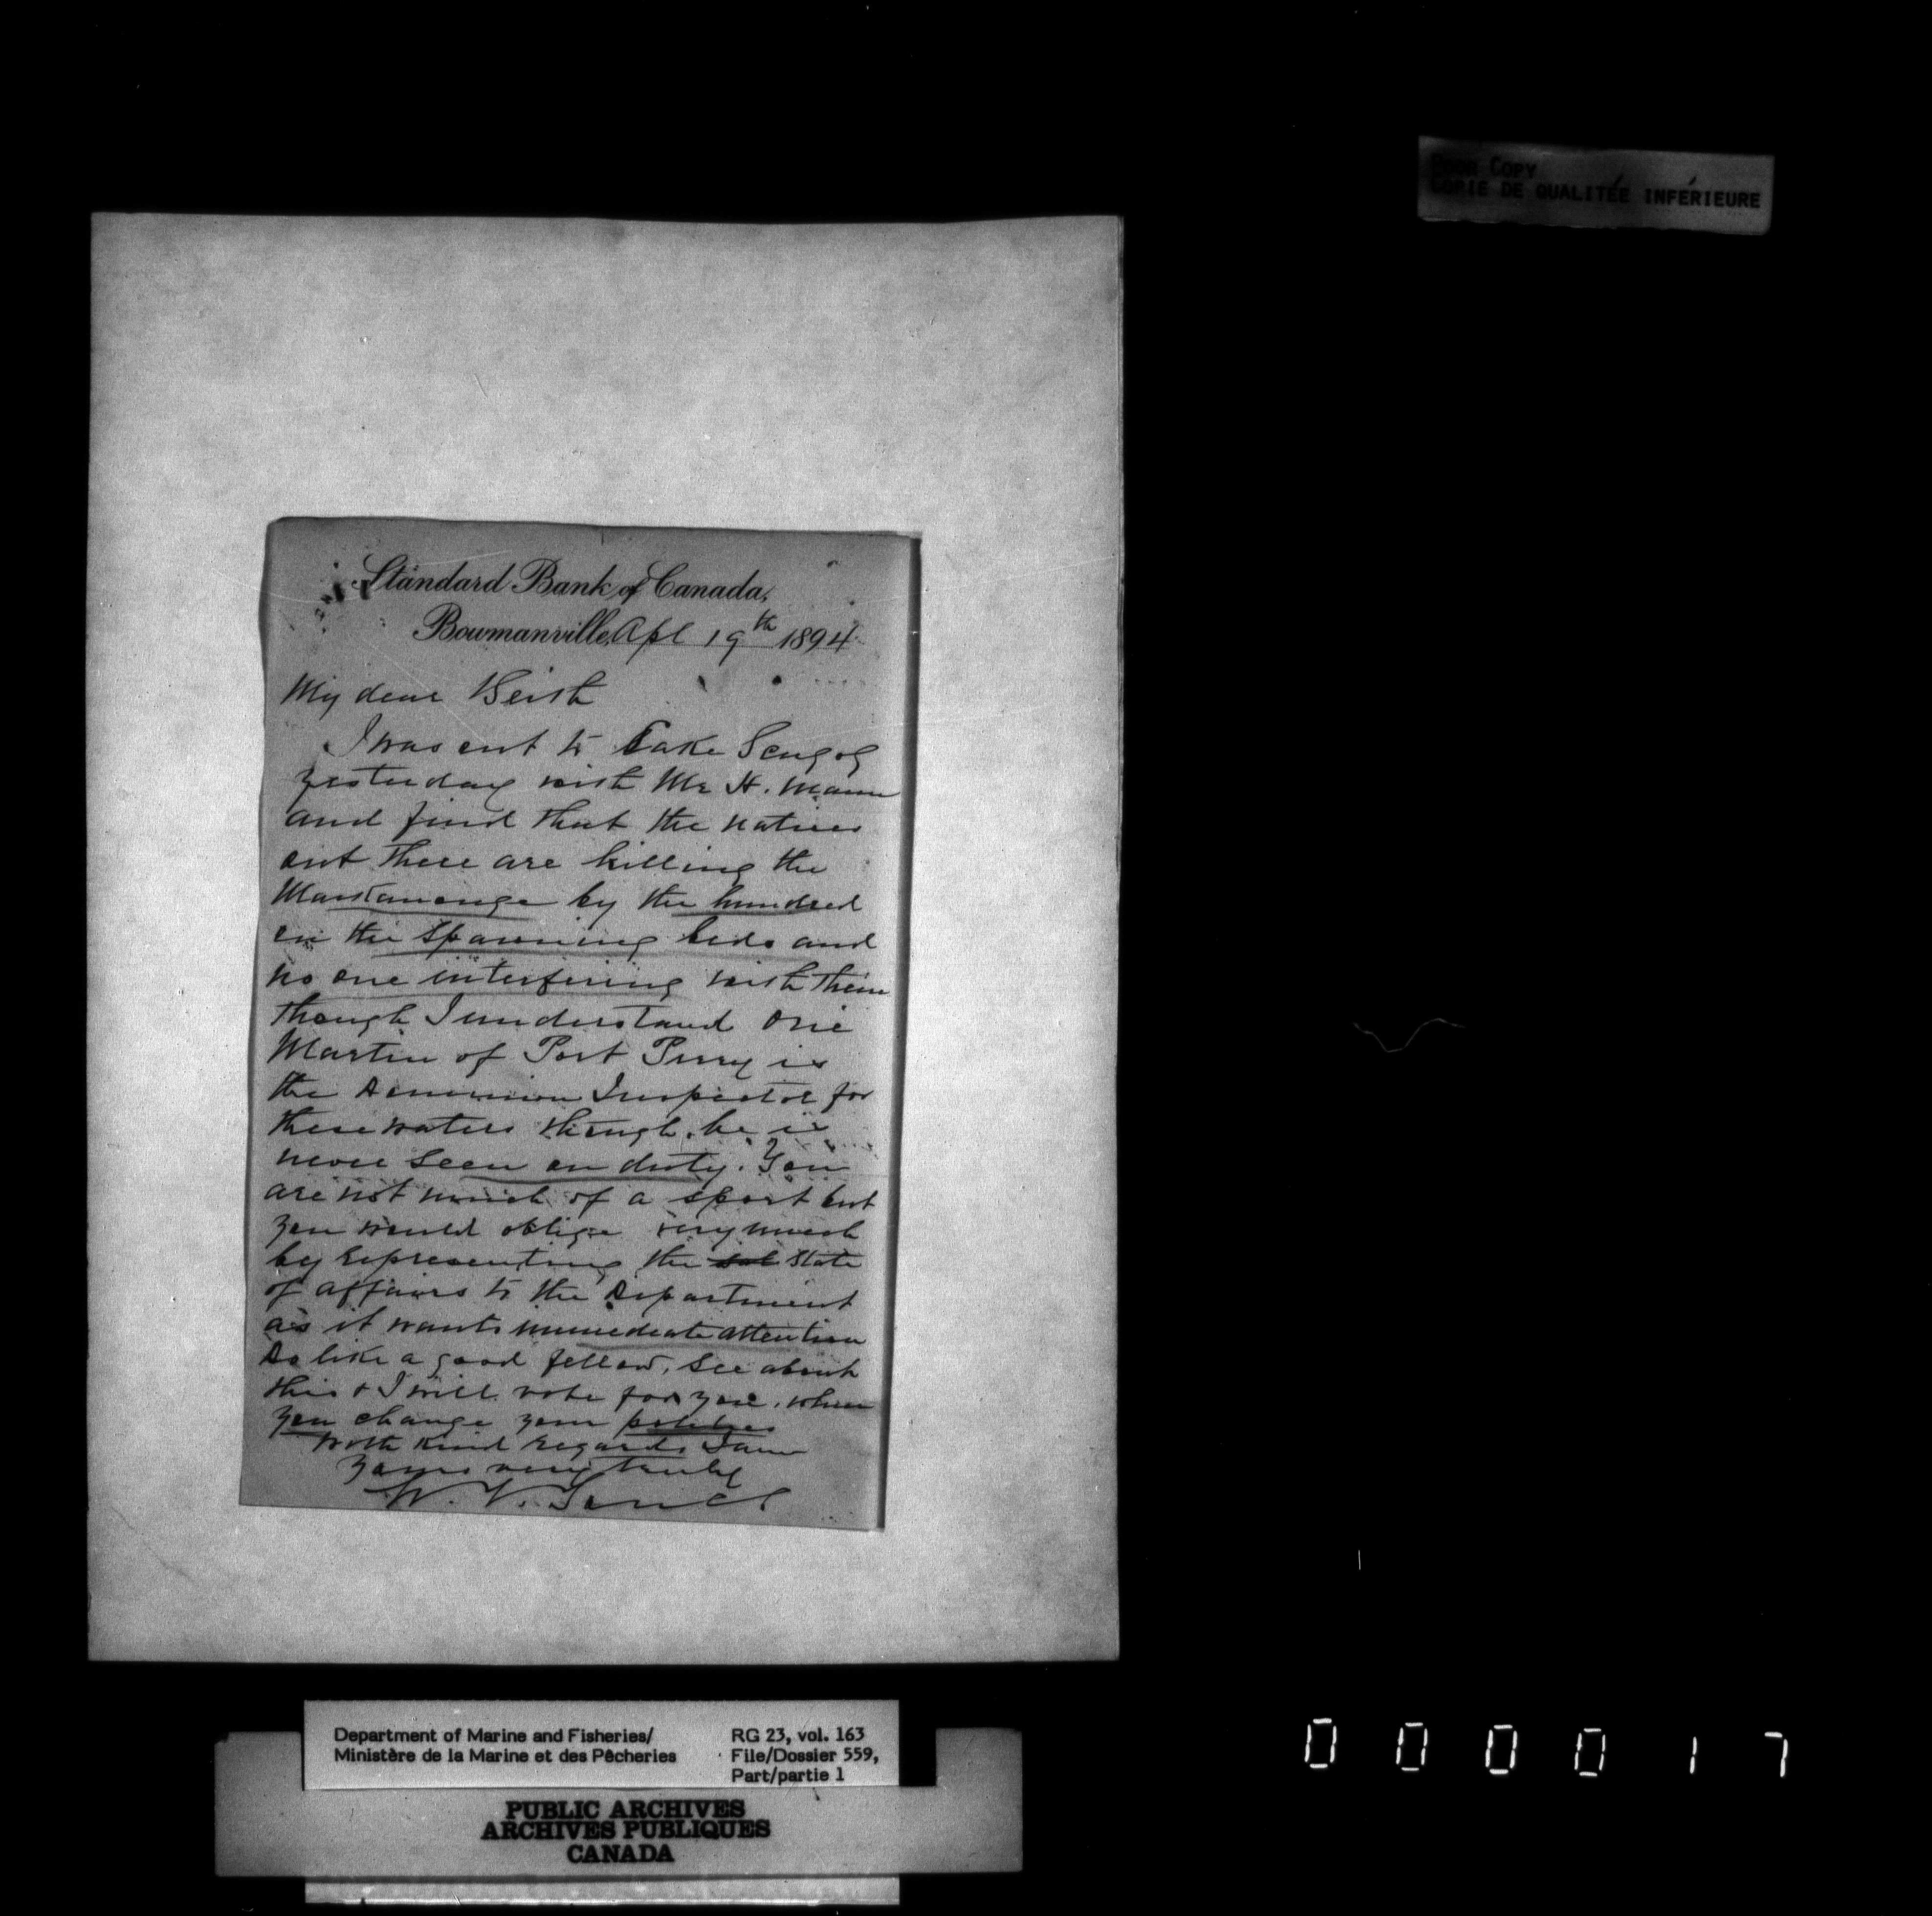 POOR COPY
COPIE DE QUALITÉE INFÉRIEURE
Standard Bank of Canada,
Bowmanville, Apl 19th 1894
My dear Beith
I was out to Lake Scugog
yesterday with Mr H. Mann
and find that the natives
out there are killing the
Maskanonge by the hundred
on the spawning beds and
no one interfering with them
though I understand one
Martin of Port Perry is
the Dominion Inspector for
these waters though he is
never seen on duty. You
are not much of a sport but
you would oblige very much
by representing the state
of affairs to the Department
as it wants immediate attention
Do like a good fellow, see about
this & I will vote for you, when
you change your politics
With kind regards I am
Yours very truly
W. J.
Department of Marine and Fisheries/
Ministère de la Marine et des Pêcheries
RG 23, vol. 163
File/Dossier 559,
Part/partie 1
PUBLIC ARCHIVES
ARCHIVES PUBLIQUES
CANADA
000017